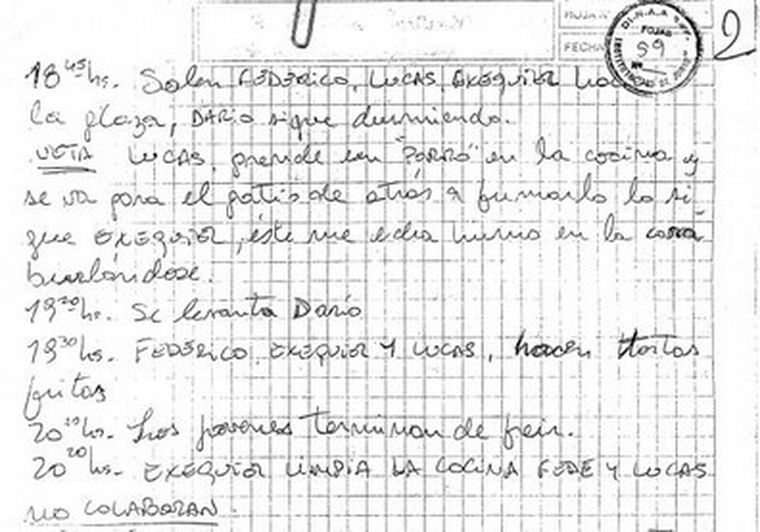 HOJA Nº
FECHA
DI.N.A.A
FOJAS
59
Nº
2
18 45 hs. Salen FEDERICO, LUCAS, EXEQUIEL
la plaza, DARIO sigue durmiendo.
NOTA LUCAS, prende un "PORRO" en la cocina y
se va para el patio de atrás a fumarlo lo si
gue EXEQUIEL, éste me echa humo en la cara
burlándose.
19 20 hs. Se levanta Dario
19 30 hs. FEDERICO, EXEQUIEL Y LUCAS, hacen tortas
fritas
20 10 hs. Los jovenes terminan de freir.
20 20 hs. EXEQUIEL LIMPIA LA COCINA FEDE Y LUCAS
no COLABORAN.